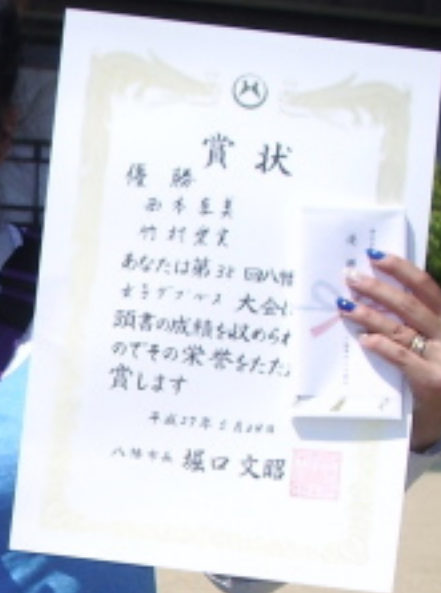 賞状
優勝
竹村
あなたは第38回八幡
女子ダブルス 大会に
頭書の成績を収められ
のでその栄誉をたた
賞します
平成27年 月 日
八幡市長 堀口文昭
優勝